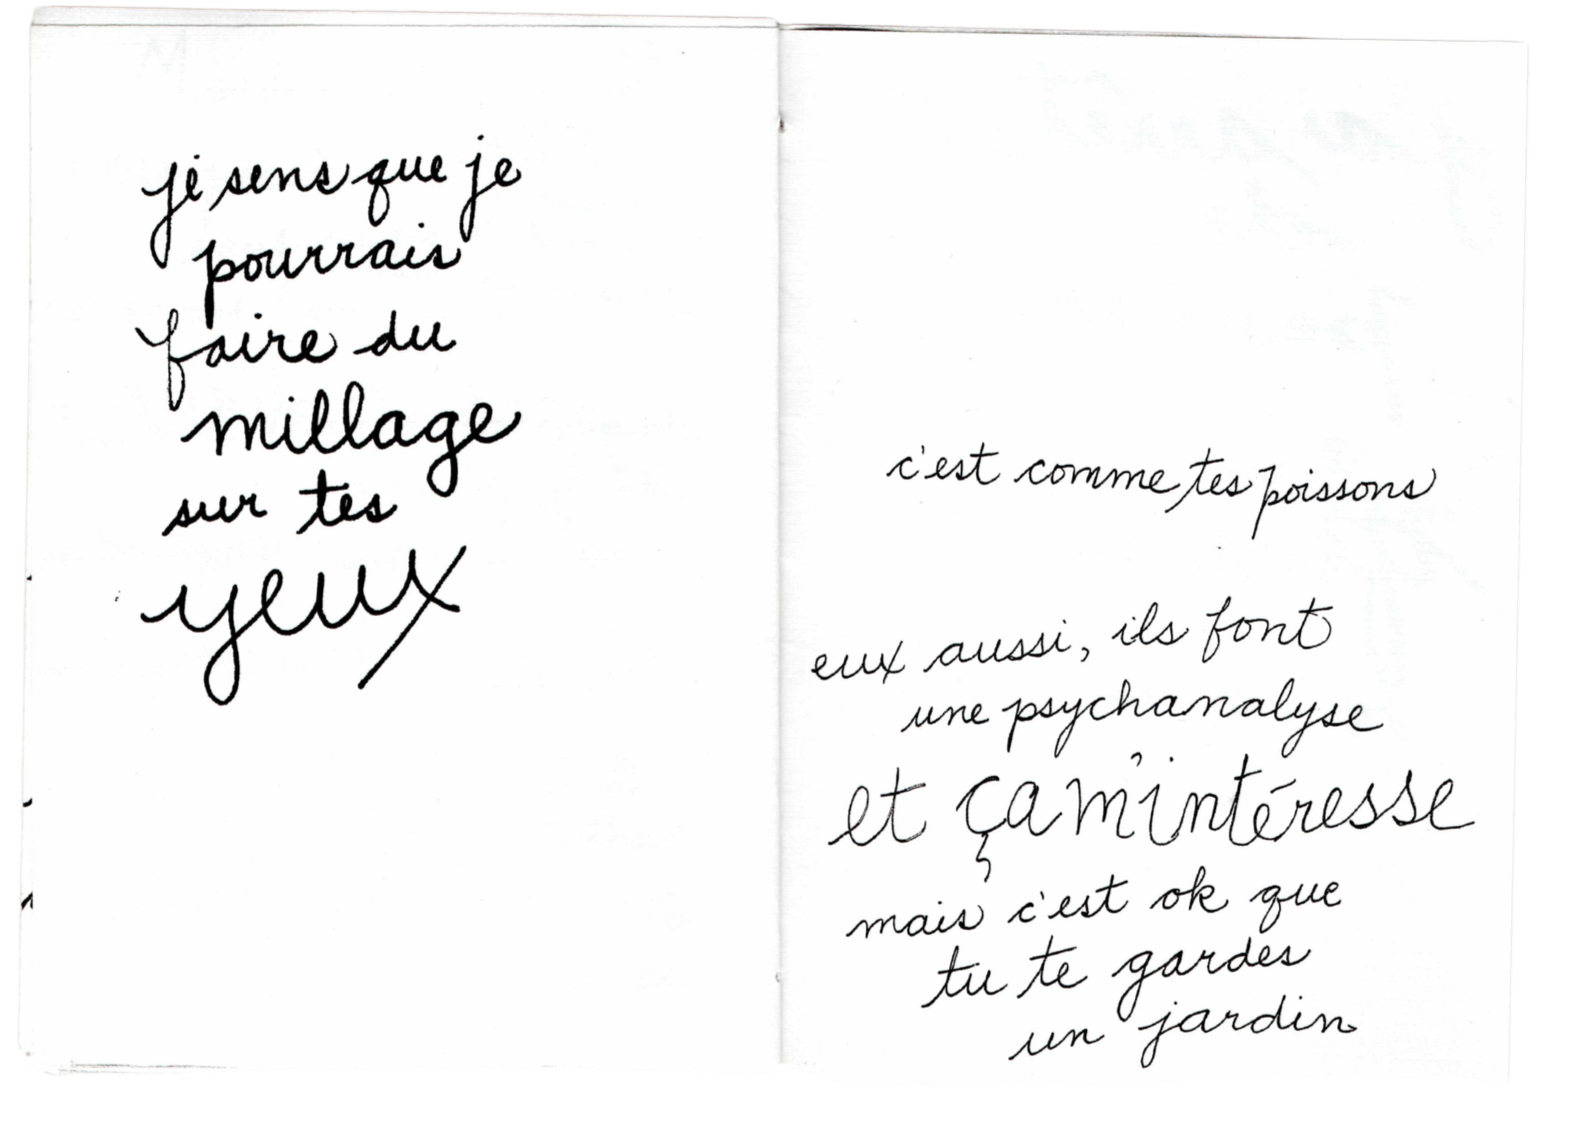 je sens que je
pourrais
faire du
millage
sur tes
yeux
c'est comme tes poissons
eux aussi, ils font
une psychanalyse
et ça m'intéresse
mais c'est ok que
tu te gardes
un jardin